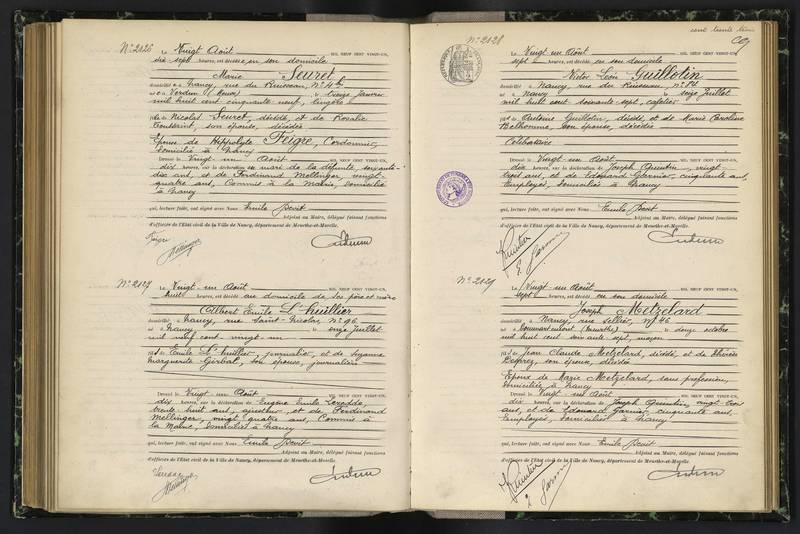 N° 2126
Le Vingt Août MIL NEUF CENT VINGT-UN,
dix sept heures, est décédée en son domicile
Marie Seuret
domiciliée à Nancy, rue du Ruisseau, N°
née à Verdun (Meuse) le Janvier
mil huit cent cinquante neuf, lingère
fille de Nicolas Seuret, décédé, et de Rosalie
Toussaint, son épouse, décédée
Épouse de Hippolyte Feigre, Cordonnier,
domicilié à Nancy
Dressé le Vingt un Août MIL NEUF CENT VINGT-UN,
dix heures, sur la déclaration du mari de la défunte, soixante-
dix ans, et de Ferdinand Mellinger, vingt-
quatre ans, Commis à la Mairie, domicilié
à Nancy
qui, lecture faite, ont signé avec Nous Emile
Adjoint au Maire, délégué faisant fonctions
d'officier de l'État civil de la Ville de Nancy, département de Meurthe-et-Moselle.
Feigre
Mellinger
N° 2127
Le Vingt-un Août MIL NEUF CENT VINGT-UN,
huit heures, est décédé au domicile de ses père et mère
Albert Emile L'huillier
domicilié à Nancy, rue Saint-Nicolas, N° 96
né à Nancy le onze Juillet
mil neuf cent vingt-un
fils de Emile L'huillier, journalier, et de Suzanne
Marguerite son épouse, journalière
Dressé le Vingt-un Août MIL NEUF CENT VINGT-UN,
dix heures, sur la déclaration de Eugène Emile
trente huit ans, ajusteur, et de Ferdinand
Mellinger, vingt quatre ans, Commis à
la Mairie, domiciliés à Nancy
qui, lecture faite, ont signé avec Nous Emile
Adjoint au Maire, délégué faisant fonctions
d'officier de l'État civil de la Ville de Nancy, département de Meurthe-et-Moselle.
Mellinger
cent trente
N° 2128
Le Vingt-un Août MIL NEUF CENT VINGT-UN,
sept heures, est décédé en son domicile
Victor Léon Guillotin
domicilié à Nancy, rue du Ruisseau, N° 84
né à Nancy le seize Juillet
mil huit cent soixante sept, cafetier
fils de Antoine Guillotin, décédé, et de Marie Caroline
Belhomme, son épouse, décédée
Célibataire
Dressé le Vingt-un Août MIL NEUF CENT VINGT-UN,
dix heures, sur la déclaration de Joseph Quentin, vingt
ans, et de Edouard Garnier, cinquante ans,
Employés, domiciliés à Nancy
qui, lecture faite, ont signé avec Nous Emile
Adjoint au Maire, délégué faisant fonctions
d'officier de l'État civil de la Ville de Nancy, département de Meurthe-et-Moselle.
N° 2129
Le Vingt-un Août MIL NEUF CENT VINGT-UN,
sept heures, est décédé en son domicile
Joseph Metzelard
domicilié à Nancy, rue Sellier, N° 46
né à (Meurthe) le douze octobre
mil huit cent soixante sept, maçon
fils de Jean Claude Metzelard, décédé, et de Thérèse
son épouse, décédée
Époux de Marie Metzelard, sans profession,
domiciliée à Nancy
Dressé le Vingt-un Août MIL NEUF CENT VINGT-UN,
dix heures, sur la déclaration de Joseph Quentin, vingt
ans, et de Edouard Garnier, cinquante ans,
Employés, domiciliés à Nancy
qui, lecture faite, ont signé avec Nous Emile
Adjoint au Maire, délégué faisant fonctions
d'officier de l'État civil de la Ville de Nancy, département de Meurthe-et-Moselle.